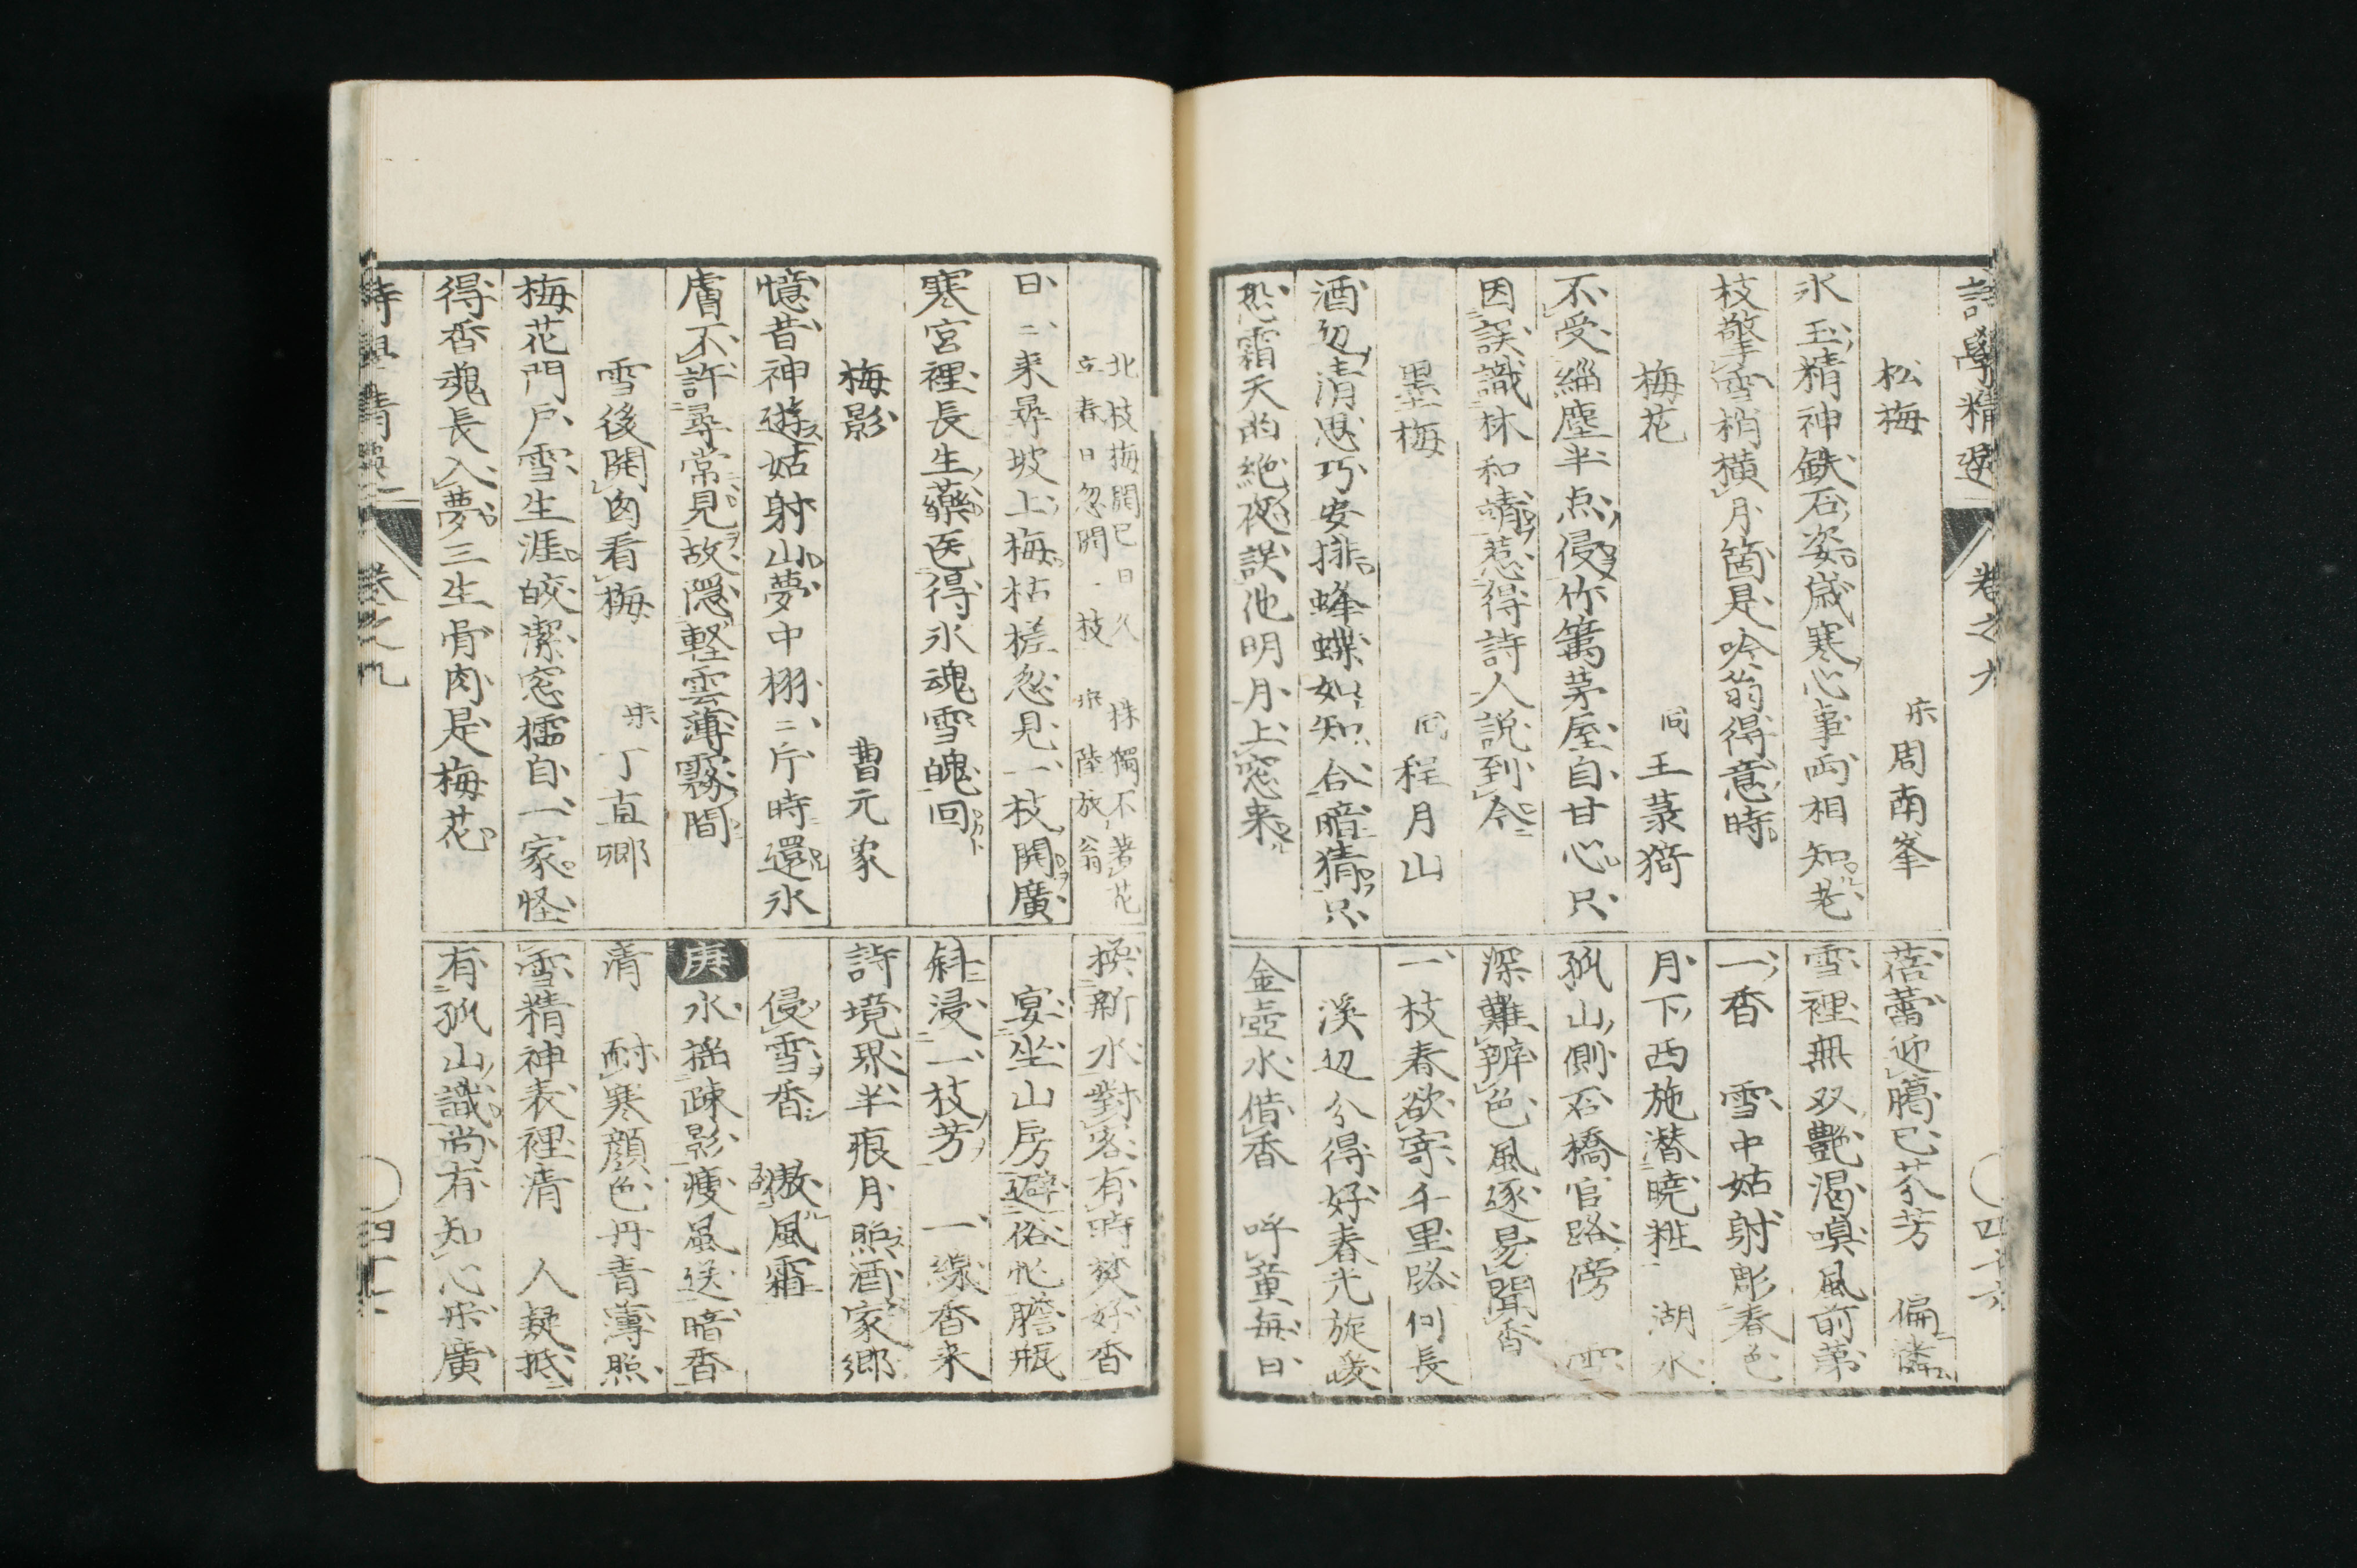 詩學精選 卷之九 四十六
松梅 宋 周南峯
氷玉精神鉄石姿歲寒心事兩相知老
枝擎雪梢橫月箇是吟翁得意時
梅花 同 王菉猗
不受緇塵半点侵竹籬茅屋自甘心只
因誤識林和靖惹得詩人説到今
墨梅 同 程月山
酒辺清思巧安排蜂蝶如知合暗猜只
恐霜天的絶夜誤他明月上窓来
蓓蕾迎臘已芬芳 偏憐
雪裡無双艶渴嗅風前第
一香 雪中姑射彫春色
月下西施潛曉粧 湖水
孤山側石橋官路傍 雪
深難辨色風逐易聞香
一枝春欲寄千里路何長
溪辺分得好春光旋汲
金壺水借香 呼童每日
北枝梅開已日久 一株獨不著花
立春日忽開一枝 宋 陸放翁
日二来尋坡上梅枯槎忽見一枝開廣
寒宮裡長生藥医得氷魂雪魄回
梅影 曹元象
憶昔神遊姑射山夢中栩二片時還氷
膚不許尋常見故隱軽雲薄霧間
雪後開窗看梅 宋 丁直卿
梅花門戶雪生涯皎潔窓櫺自一家怪
得香魂長入夢三生骨肉是梅花
換新水對客有時焚好香
宴坐山房避俗忙膽瓶
斜浸一枝芳 一縷香来
詩境界半痕月照酒家鄉
侵雪香 傲風霜
庚 水搖疎影瘦風送暗香
清 耐寒顔色丹青薄照
雪精神表裡清 人疑抵
有孤山識尚有知心宋廣
詩學精選 卷之九